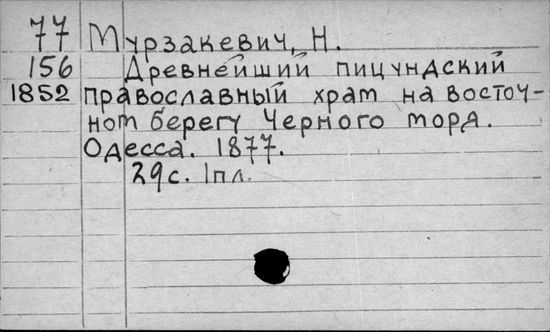 77 Мурзакевич, Н.
156 Древнейший пицундский
1852 православный храм на восточ-
ном берегу Черного моря.
Одесса. 1877.
29с. 1пл.